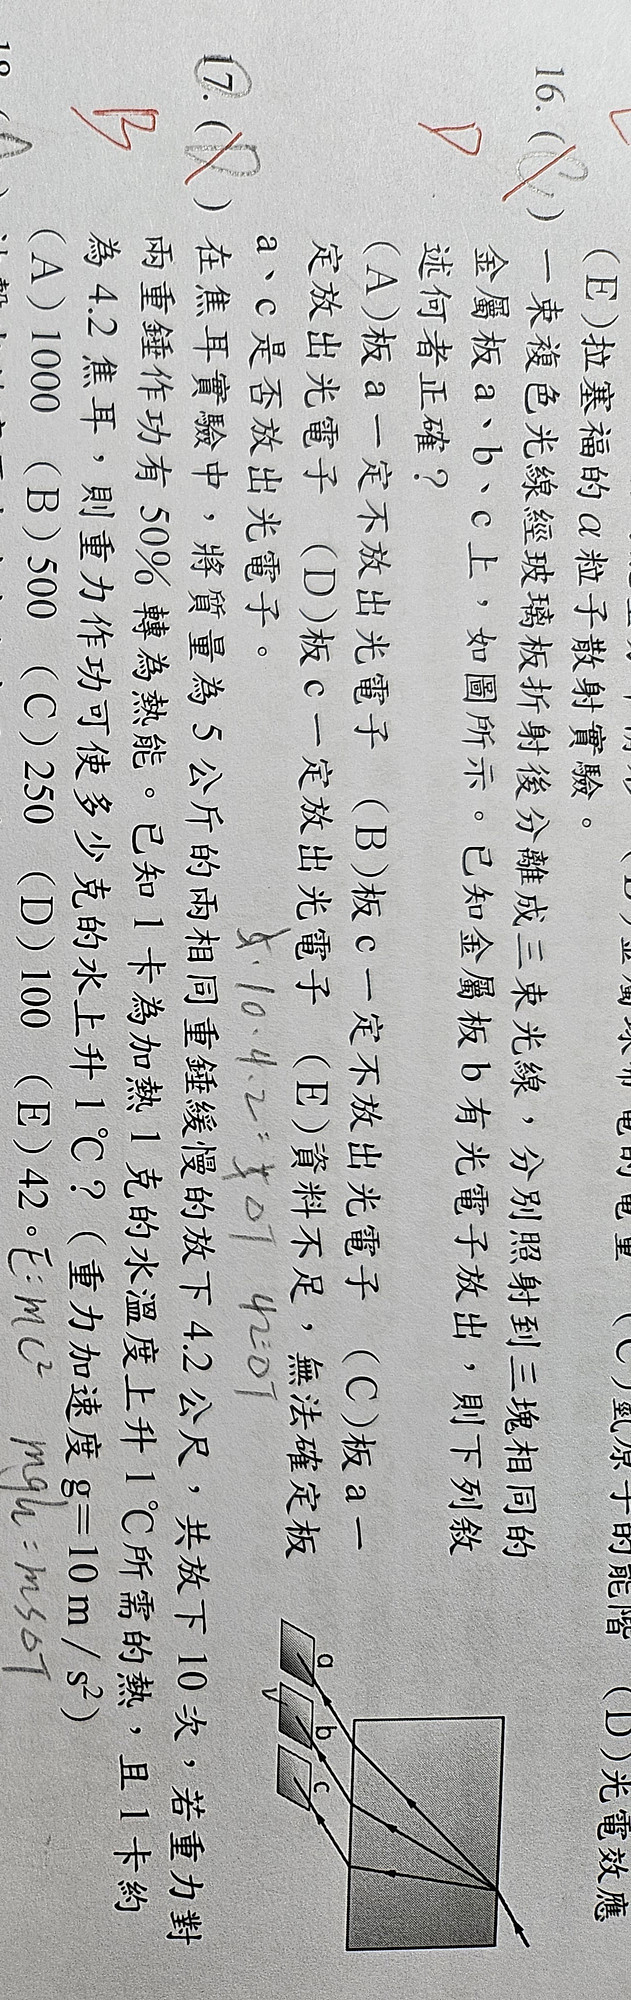 (E)拉塞福的α粒子散射實驗。
16. (C) 一束複色光線經玻璃板折射後分離成三束光線,分別照射到三塊相同的
D
金屬板a、b、c上,如圖所示。已知金屬板b有光電子放出,則下列敘
述何者正確?
(A)板a一定不放出光電子 (B)板c一定不放出光電子 (C)板a一
定放出光電子 (D)板c一定放出光電子 (E)資料不足,無法確定板
a、c是否放出光電子。
a
b
c
5·10·4.2=
42=ΔT
17. (D) 在焦耳實驗中,將質量為5公斤的兩相同重錘緩慢的放下4.2公尺,共放下10次,若重力對
B
兩重錘作功有50%轉為熱能。已知1卡為加熱1克的水溫度上升1℃所需的熱,且1卡約
為4.2焦耳,則重力作功可使多少克的水上升1℃?(重力加速度g=10m/s²)
(A)1000 (B)500 (C)250 (D)100 (E)42。
E=mc² mgh=msΔT
18. (A)